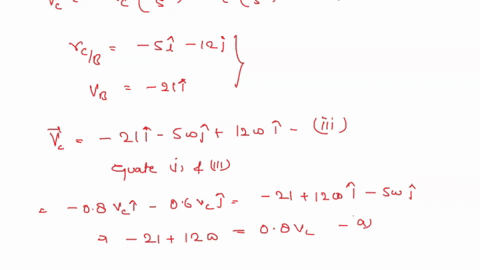 r_C/B = -5î - 12ĵ
V_B = -21î
V⃗_c = -21î - 5ωĵ + 12ωî - (iii)
Equate i, & (iii)
= -0.8 V_c î - 0.6 V_c ĵ = -21 + 12ω î - 5ω ĵ
-21 + 12ω = 0.8 V_c